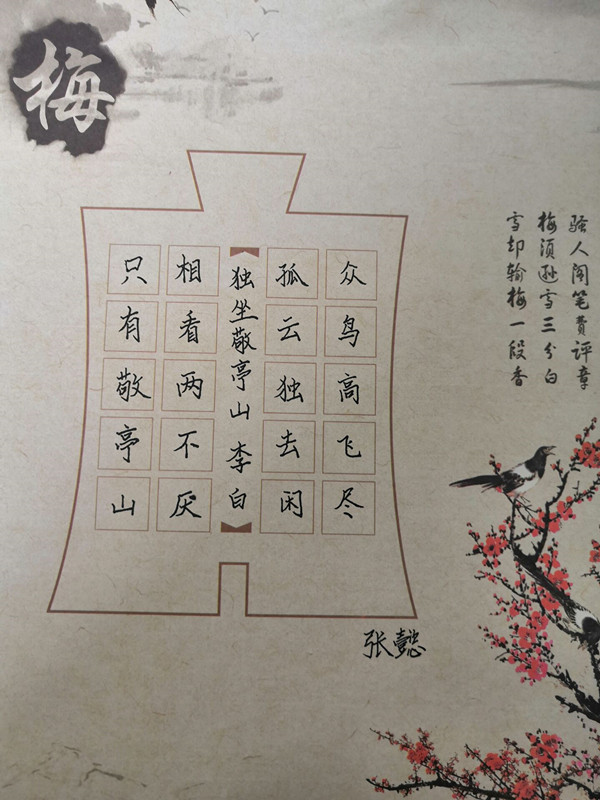 梅
骚人阁笔費评章
梅须逊雪三分白
雪却输梅一段香
众鸟高飞尽
孤云独去闲
独坐敬亭山 李白
相看两不厌
只有敬亭山
张懿